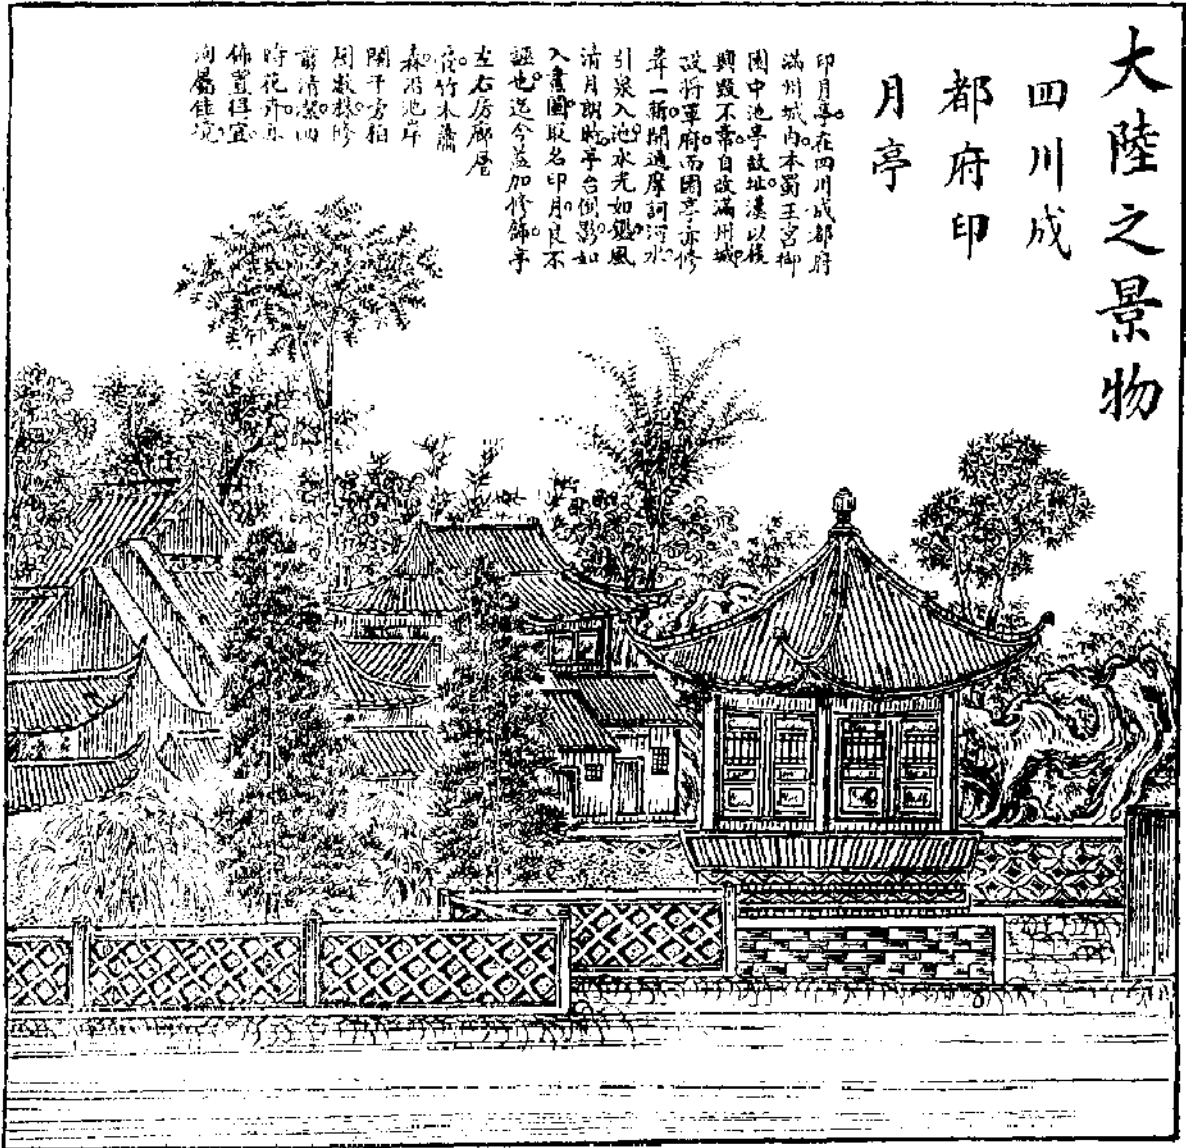 大陸之景物
四川成
都府印
月亭
印月亭。在四川成都府
滿州城內。本蜀王宮御
園中池亭故址。漢以後
興毀不常。自改滿州城。
改將軍府。而園亭亦修
葺一新。開通摩訶河水。
引泉入池。水光如鑑。風
清月朗時。亭台倒影。如
入畫圖。取名印月。良不
誣也。迄今益加修飾。亭
左右房廊層
竹木蕭
森。沿池岸
闌干旁植
樹數株。修
剪清潔。四
時花卉。
佈置得宜。
洵屬佳境。